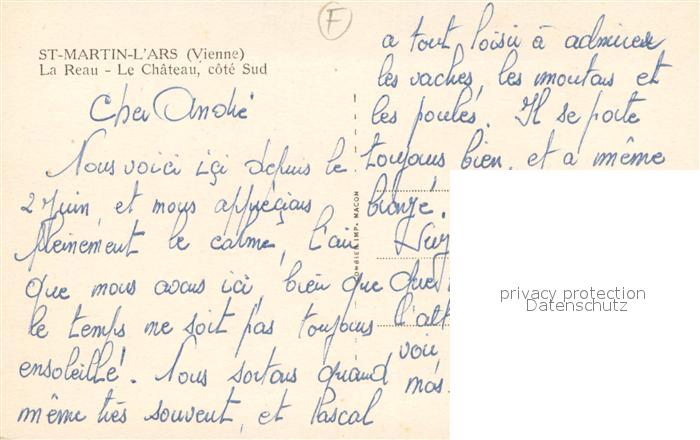 F
ST-MARTIN-L'ARS (Vienne)
La Reau - Le Château, côté Sud
Cher André
Nous voici içi depuis le
2 Juin, et nous appréçions
pleinement le calme, l'air
que nous avons ici, bien que
le temps ne soit pas toujours
ensoleillé. Nous sortons quand
même très souvent, et Pascal
a tout loisir à admirer
les vaches, les moutons et
les poules. Il se porte
toujours bien, et a même
bronzé.
l'alt
voir
COMBIER IMP. MACON
privacy protection
Datenschutz